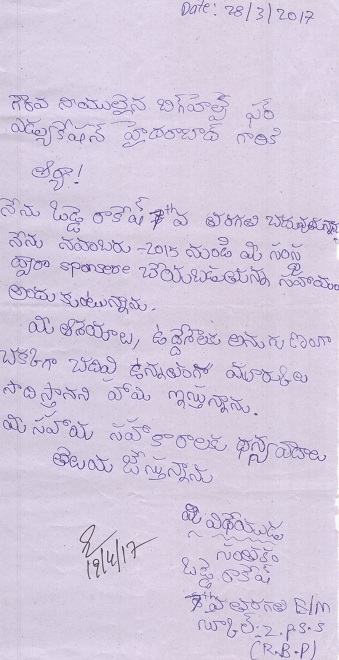 Date: 28/3/2017
గౌరవ నీయులైన బిగ్‌హెల్ప్ ఫర్
ఎడ్యుకేషన్ హైదరాబాద్ గారికి
ఆర్యా!
నేను ఓడ్డె రాకేష్ 7th వ తరగతి చదువుతున్నాను
నేను నవంబరు -2015 నుండి మీ సంస్థ
ద్వారా sponsere చేయబడుతున్న సహాయం
అందుకుంటున్నాను.
మీ ఆశయాలు, ఉద్దేశాలకు అనుగుణంగా
చక్కగా చదివి ఉన్నతంగా మార్కులు
సాదిస్తానని హామి ఇస్తున్నాను.
మీ సహాయ సహకారాలకు ధన్యవాదాలు
తెలియ జేస్తున్నాను
మీ విధేయుడు
సంతకం
ఓడ్డె రాకేష్
7th వ తరగతి E/M
స్కూల్:- Z.P.S.S
(R.B.P)
19/4/17